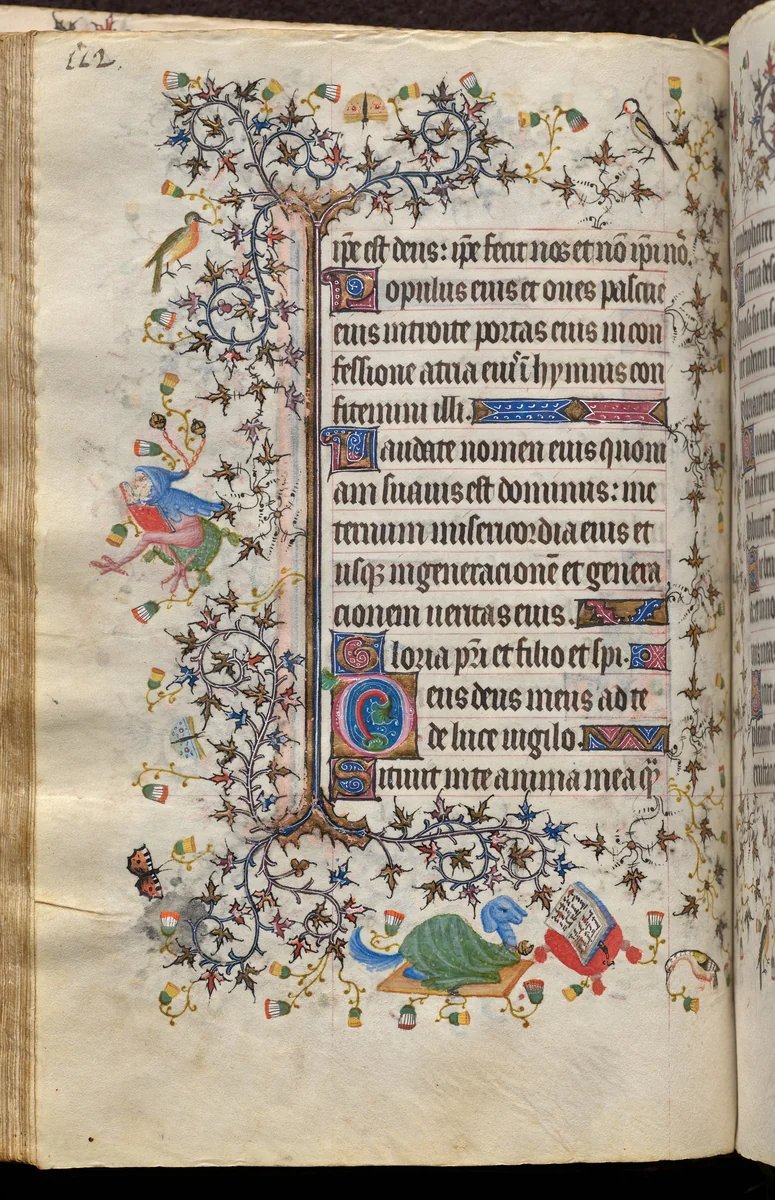 122.
ip̄e est deus: ip̄e fecit nos et nō ip̄i nō.
Populus eius et oues pascue
eius introite portas eius in con
fessione atria eiuˢ ī hymnis con
fitemini illi.
Laudate nomen eius quoni
am suauis est dominus: in e
ternum misericordia eius et
usqꝫ in generacionē et genera
cionem ueritas eius.
Gloria pr̄i et filio et spi.
Deus deus meus ad te
de luce uigilo.
Sitiuit in te anima mea q̄